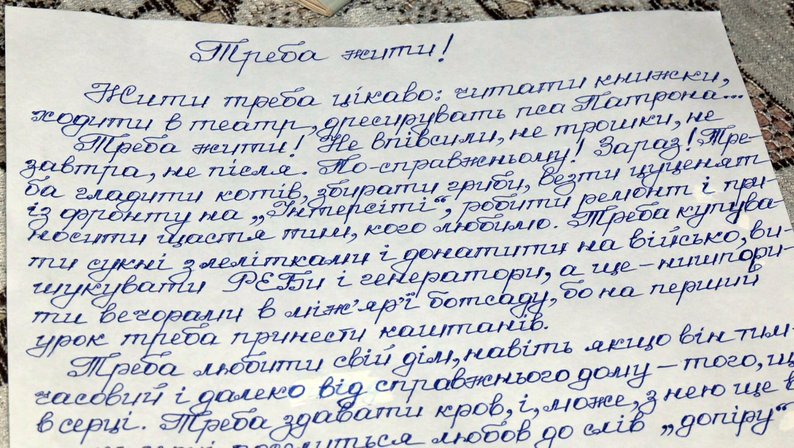 Треба жити!
Жити треба цікаво: читати книжки,
ходити в театр, дресирувать пса Патрона...
Треба жити! Не впівсили, не трошки, не
завтра, не після. По-справжньому! Зараз! Тре-
ба гладити котів, збирати гриби, везти цуценят
із фронту на „Інтерсіті“, робити ремонт і при-
носити щастя тим, кого любимо. Треба купува-
ти сукні з лелітками і донатити на військо, ви-
шукувати РЕБи і генератори, а ще – нишпори-
ти вечорами в між'яр'ї ботсаду, бо на перший
урок треба принести каштанів.
Треба любити свій дім, навіть якщо він тим-
часовий і далеко від справжнього дому – того, що
в серці. Треба здавати кров, і, може, з нею ще в
любов до слів „допіру“